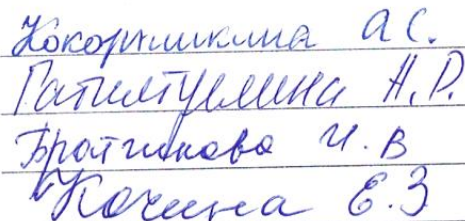 Кокорышкина А С.
Гатилтуллина Н. Р.
Братчикова И. В
Кочина Е. З